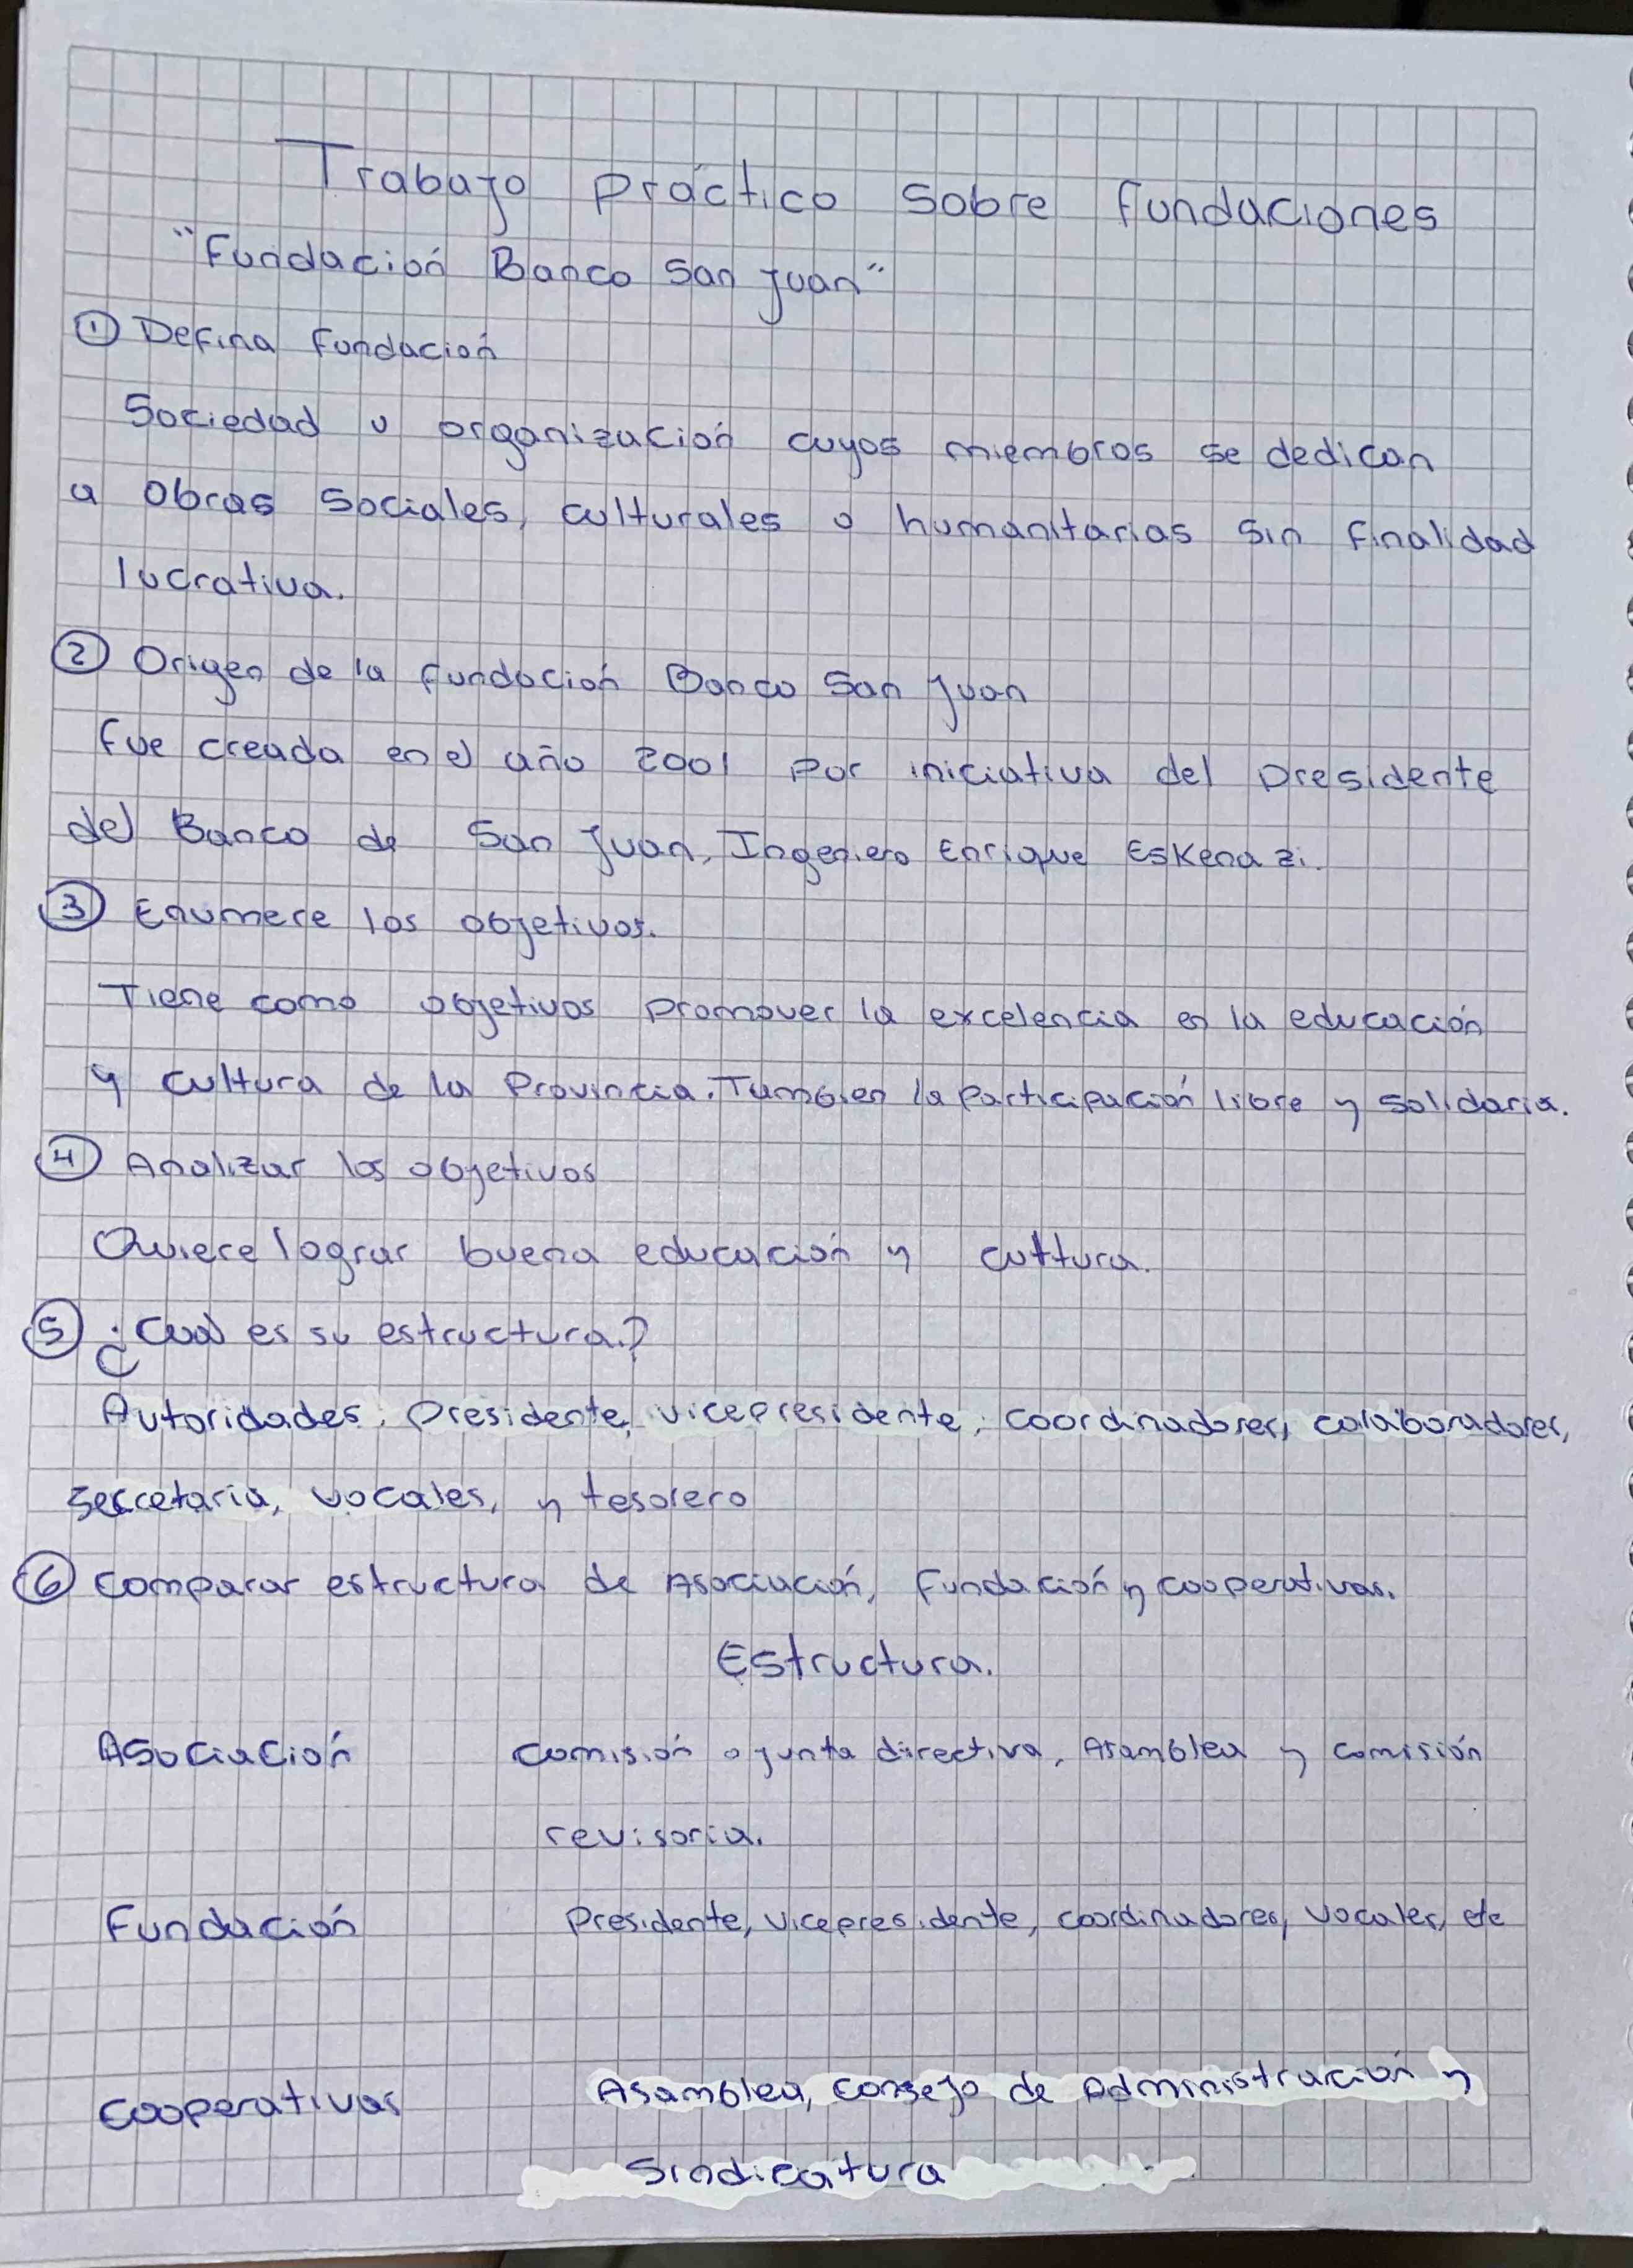 Trabajo práctico sobre fundaciones
"Fundación Banco San Juan"
① Defina fundación
Sociedad u organización cuyos miembros se dedican
a obras sociales, culturales o humanitarias sin finalidad
lucrativa.
② Origen de la fundación Banco San Juan
fue creada en el año 2001 por iniciativa del presidente
del Banco de San Juan, Ingeniero Enrique Eskenazi.
③ Enumere los objetivos.
Tiene como objetivos promover la excelencia en la educación
y cultura de la Provincia. Tambien la participación libre y solidaria.
④ Analizar los objetivos
Quiere lograr buena educación y cultura.
⑤ ¿Cual es su estructura?
Autoridades: Presidente, vicepresidente, coordinadores, colaboradores,
secretaria, vocales, y tesorero
⑥ comparar estructura de Asociación, Fundación y cooperativas.
Estructura.
Asociación comisión o junta directiva, Asamblea y comisión
revisoria.
Fundación Presidente, vicepresidente, coordinadores, vocales, etc
Cooperativas Asamblea, consejo de Administración y
Sindicatura